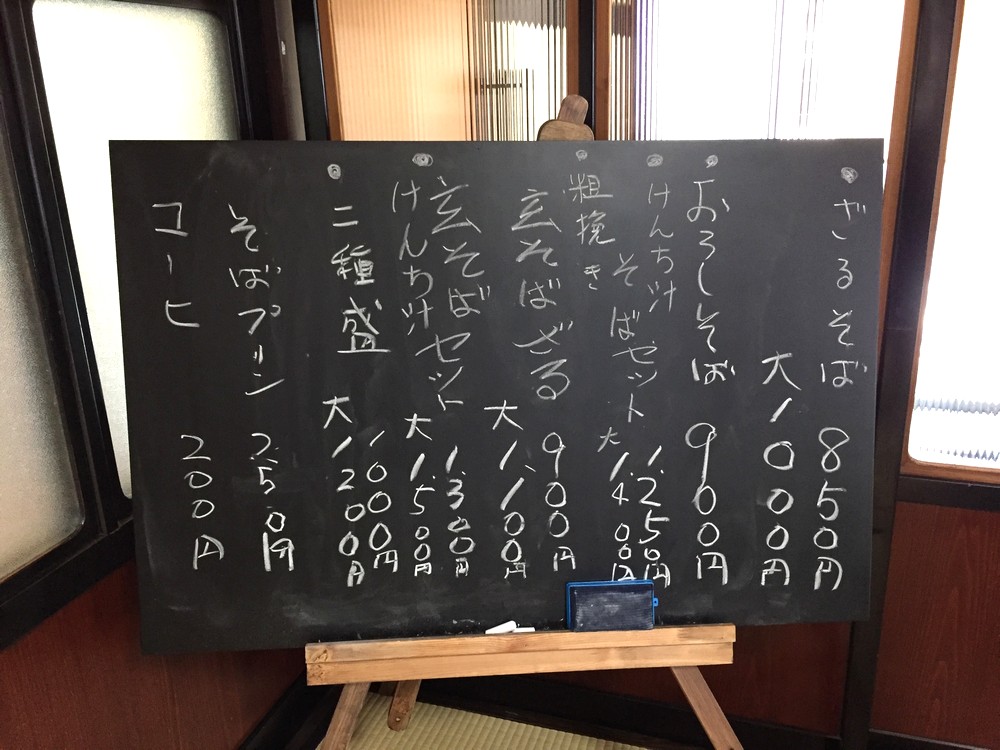 ざるそば 850円
大1000円
おろしそば 900円
けんち汁
そばセット 1.250円
大1.400円
粗挽き
玄そばざる 900円
大1.100円
玄そばセット 1.300円
けんち汁 大1.500円
二種盛 1000円
大1200円
そばプリン 250円
コーヒ 200円